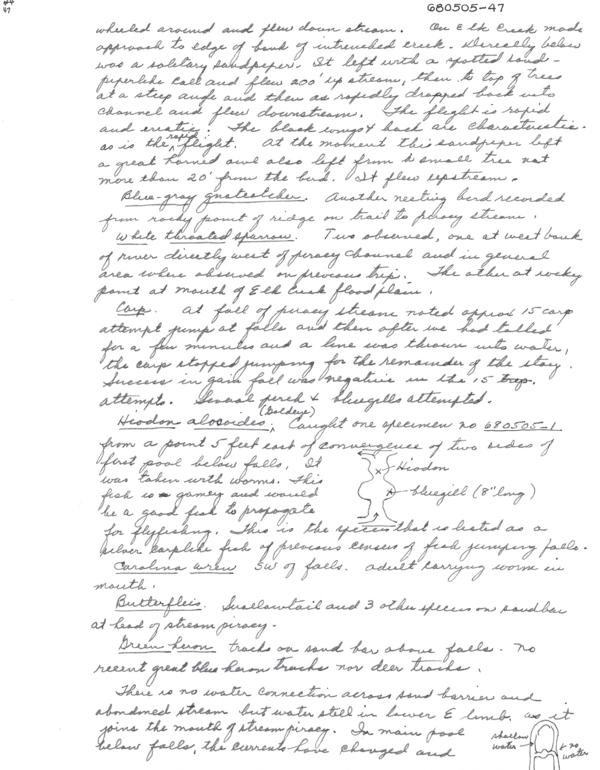 47
680505-47
wheeled around and flew down stream. On Elk Creek made
approach to edge of bank of intrenched creek. Directly below
was a solitary sandpiper. It left with a spotted sand-
piperlike call and flew 200' up stream, then to top of trees
at a steep angle and then as rapidly dropped back into
channel and flew downstream. The flight is rapid
and erratic. The black wings & back are characteristic
as is the rapid flight. At the moment this sandpiper left
a great horned owl also left from a small tree not
more than 20' from the bird. It flew upstream.
Blue-gray gnatcatcher. Another nesting bird recorded
from rocky point of ridge on trail to piracy stream.
White throated sparrow. Two observed, one at west bank
of river directly west of piracy channel and in general
area where observed on previous trip. The other at rocky
point at mouth of Elk Creek flood plain.
Carp. At fall of piracy stream noted approx 15 carp
attempt jump at falls and then after we had talked
for a few minutes and a line was thrown into water,
the carp stopped jumping for the remainder of the stay.
Success in gain fall was negative in the 15
attempts. Several perch & bluegills attempted.
Hiodon alosoides, (Goldeye) Caught one specimen no 680505-1
from a point 5 feet east of convergence of two sides of
first pool below falls. It
was taken with worms. This
fish is gamey and would
be a good fish to propagate
Hiodon
bluegill (8" long)
for flyfishing. This is the species that is listed as a
silver carplike fish of previous census of fish jumping falls.
Carolina wren SW of falls. adult carrying worm in
mouth.
Butterflies. Swallowtail and 3 other species on sandbar
at head of stream piracy.
Green heron tracks on sand bar above falls. No
recent great blue heron tracks nor deer tracks.
There is no water connection across sand barrier and
abandoned stream but water still in lower E limb, as it
joins the mouth of stream piracy. In main pool
below falls, the currents have changed and
shallow water
no water